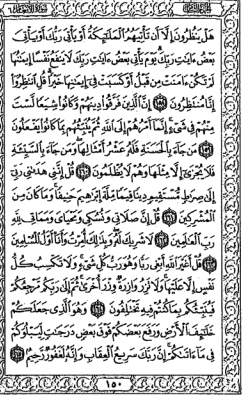 هَلْ يَنظُرُونَ إِلَّا أَن تَأْتِيَهُمُ الْمَلَائِكَةُ أَوْ يَأْتِيَ رَبُّكَ أَوْ يَأْتِيَ
بَعْضُ ءَايَاتِ رَبِّكَ يَوْمَ يَأْتِي بَعْضُ ءَايَاتِ رَبِّكَ لَا يَنفَعُ نَفْسًا إِيمَانُهَا
لَمْ تَكُنْ ءَامَنَتْ مِن قَبْلُ أَوْ كَسَبَتْ فِي إِيمَانِهَا خَيْرًا قُلِ انتَظِرُوا
إِنَّا مُنتَظِرُونَ ١٥٨ إِنَّ الَّذِينَ فَرَّقُوا دِينَهُمْ وَكَانُوا شِيَعًا لَّسْتَ
مِنْهُمْ فِي شَيْءٍ إِنَّمَا أَمْرُهُمْ إِلَى اللَّهِ ثُمَّ يُنَبِّئُهُم بِمَا كَانُوا يَفْعَلُونَ
١٥٩ مَن جَاءَ بِالْحَسَنَةِ فَلَهُ عَشْرُ أَمْثَالِهَا وَمَن جَاءَ بِالسَّيِّئَةِ
فَلَا يُجْزَىٰ إِلَّا مِثْلَهَا وَهُمْ لَا يُظْلَمُونَ ١٦٠ قُلْ إِنَّنِي هَدَانِي رَبِّي
إِلَىٰ صِرَاطٍ مُّسْتَقِيمٍ دِينًا قِيَمًا مِّلَّةَ إِبْرَاهِيمَ حَنِيفًا وَمَا كَانَ مِنَ
الْمُشْرِكِينَ ١٦١ قُلْ إِنَّ صَلَاتِي وَنُسُكِي وَمَحْيَايَ وَمَمَاتِي لِلَّهِ
رَبِّ الْعَالَمِينَ ١٦٢ لَا شَرِيكَ لَهُ وَبِذَٰلِكَ أُمِرْتُ وَأَنَا أَوَّلُ الْمُسْلِمِينَ
١٦٣ قُلْ أَغَيْرَ اللَّهِ أَبْغِي رَبًّا وَهُوَ رَبُّ كُلِّ شَيْءٍ وَلَا تَكْسِبُ كُلُّ
نَفْسٍ إِلَّا عَلَيْهَا وَلَا تَزِرُ وَازِرَةٌ وِزْرَ أُخْرَىٰ ثُمَّ إِلَىٰ رَبِّكُم مَّرْجِعُكُمْ
فَيُنَبِّئُكُم بِمَا كُنتُمْ فِيهِ تَخْتَلِفُونَ ١٦٤ وَهُوَ الَّذِي جَعَلَكُمْ
خَلَائِفَ الْأَرْضِ وَرَفَعَ بَعْضَكُمْ فَوْقَ بَعْضٍ دَرَجَاتٍ لِّيَبْلُوَكُمْ
فِي مَا ءَاتَاكُمْ إِنَّ رَبَّكَ سَرِيعُ الْعِقَابِ وَإِنَّهُ لَغَفُورٌ رَّحِيمٌ ١٦٥
١٥٠